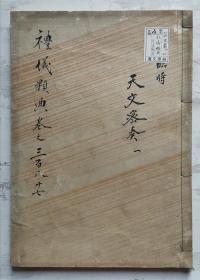 臨時
天文密奏一
禮儀類典卷之三百八十七